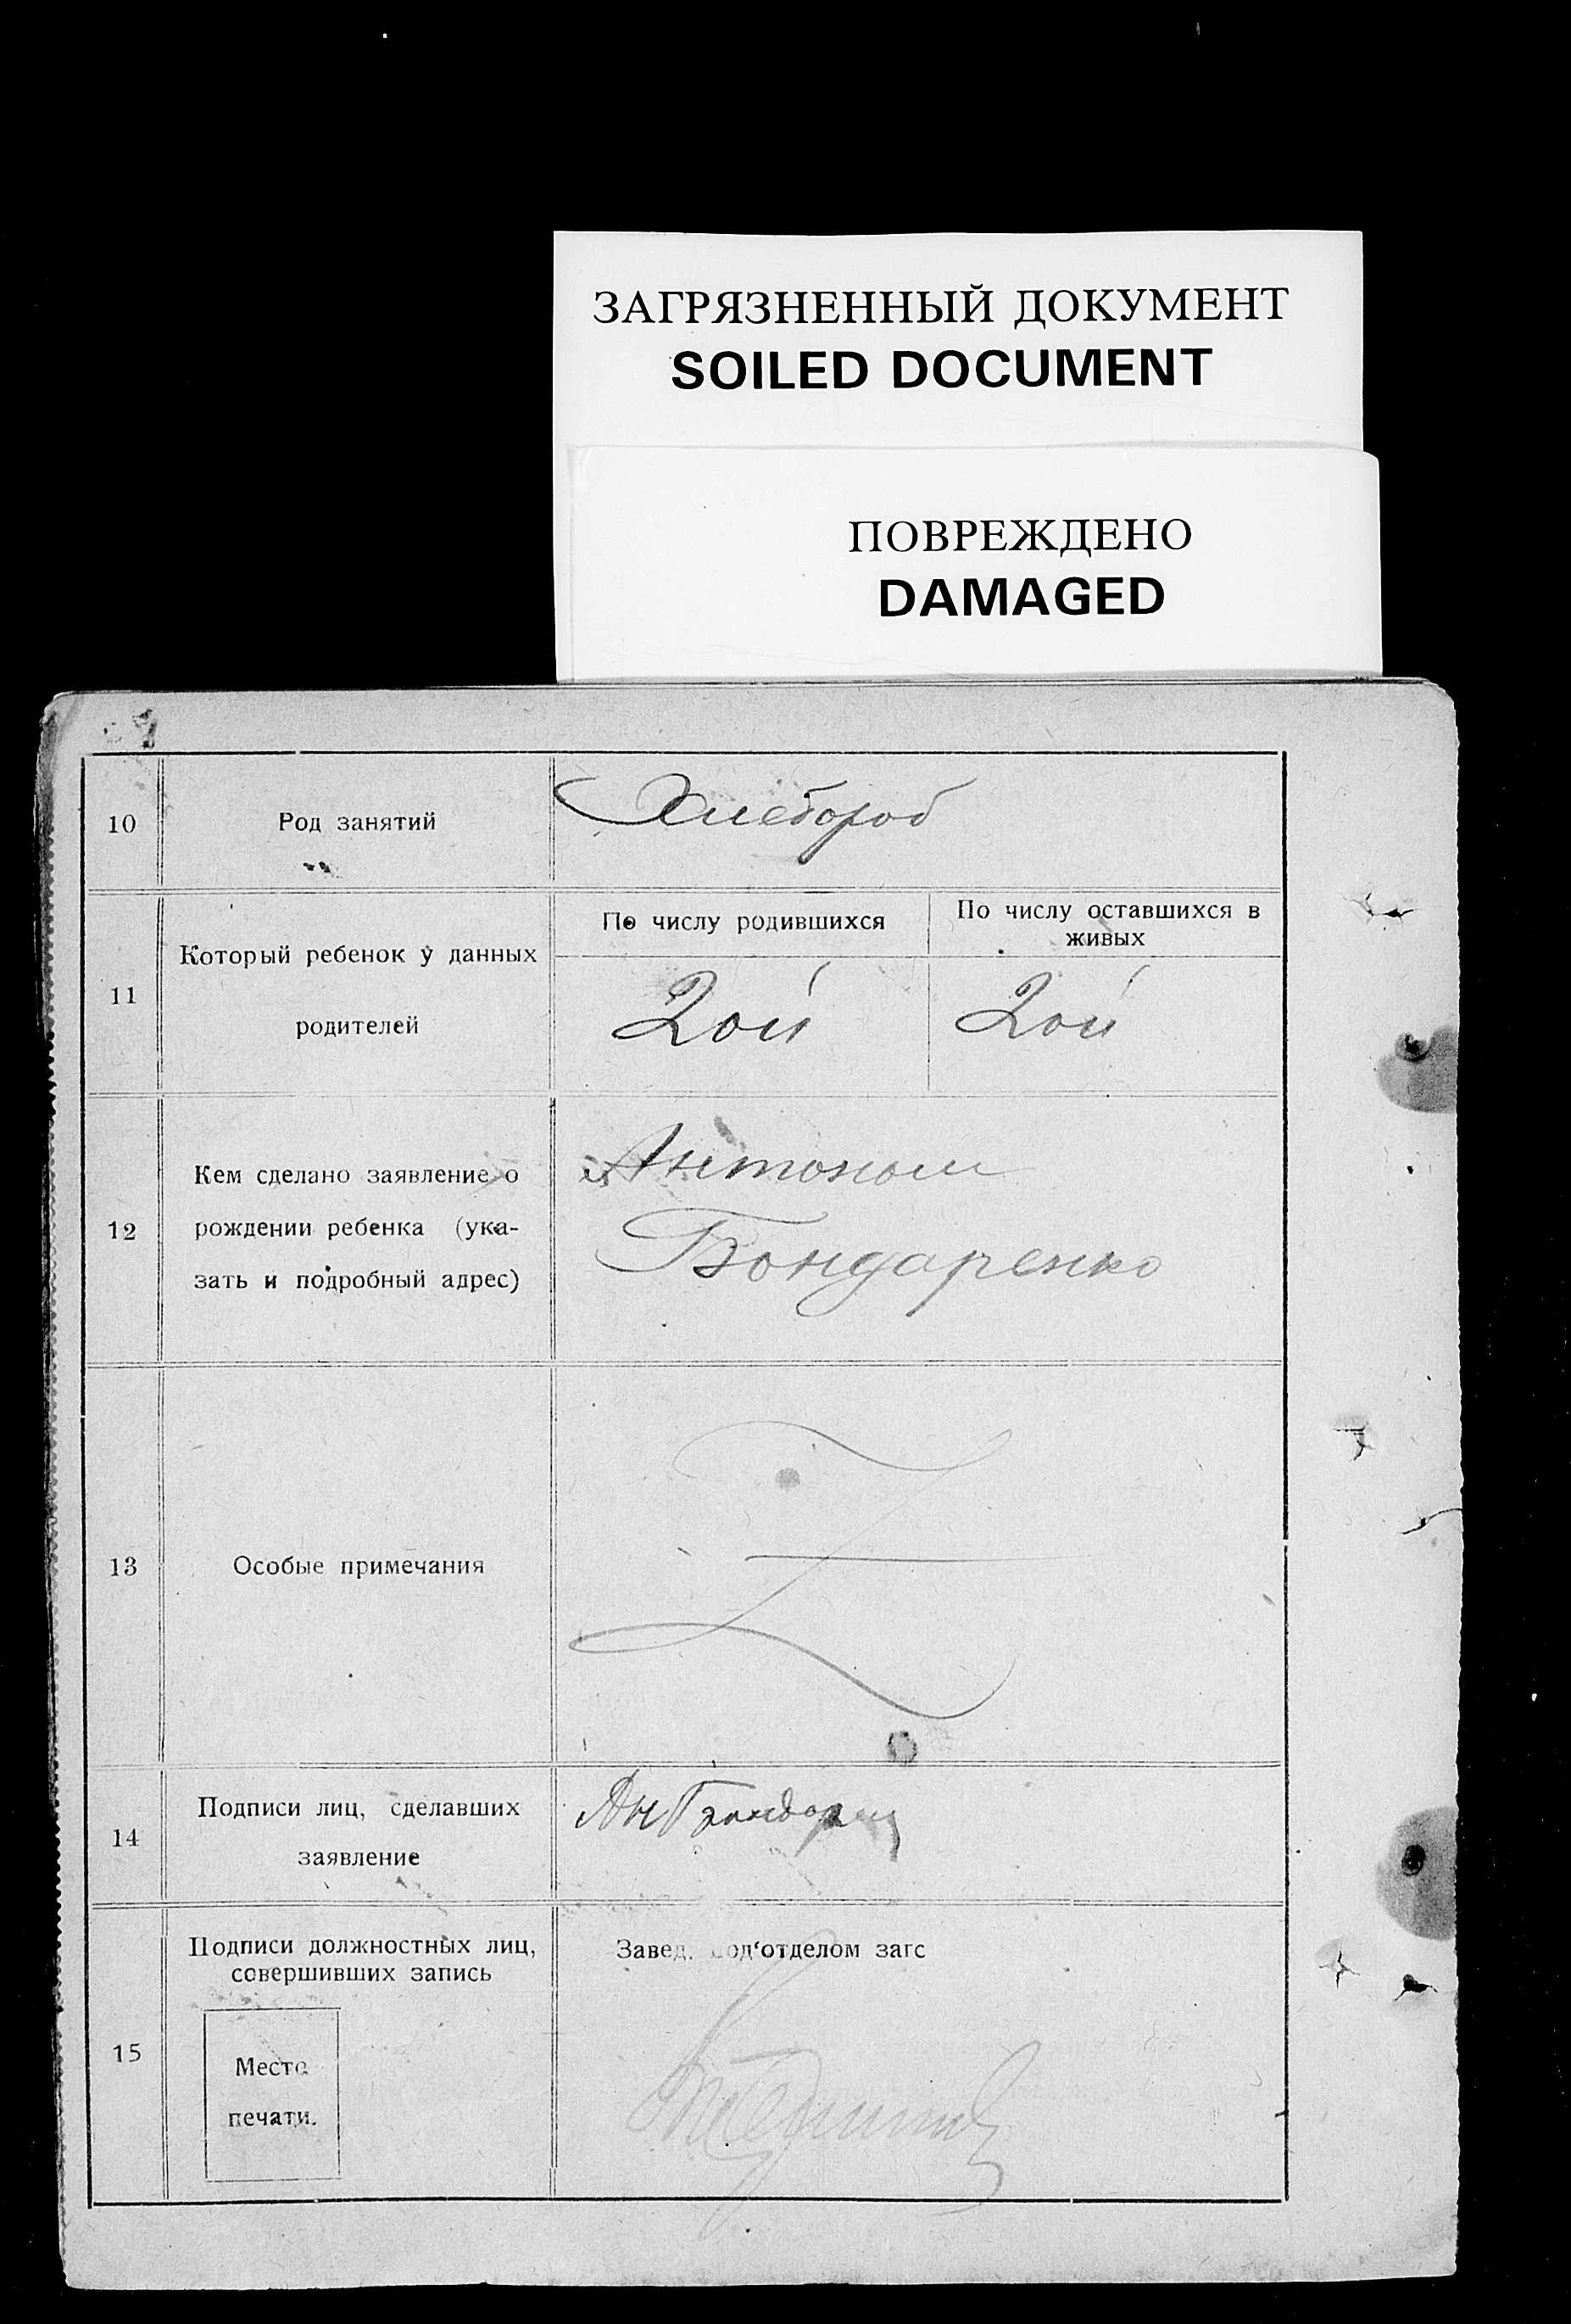 ЗАГРЯЗНЕННЫЙ ДОКУМЕНТ
SOILED DOCUMENT
ПОВРЕЖДЕНО
DAMAGED
10
Род занятий
Хлебороб
11
Который ребенок у данных
родителей
По числу родившихся
По числу оставшихся в
живых
2ой
2ой
12
Кем сделано заявление о
рождении ребенка (ука-
зать и подробный адрес)
Антоном
Бондаренко
13
Особые примечания
14
Подписи лиц, сделавших
заявление
15
Подписи должностных лиц,
совершивших запись
Место
печати.
Завед. под‘отделом загс